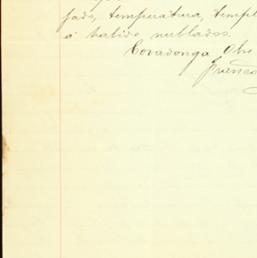 fado, temperatura, templ
á habido nublados.
Covadonga Obre